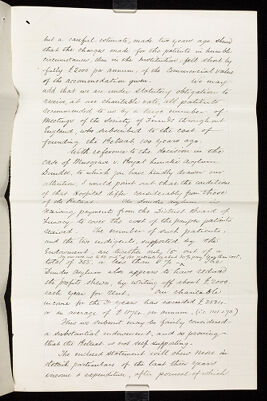 but a careful estimate, made two years ago shewed
that the charges made for the patients in humble
circumstances, then in the Institution, fell short by
fully £2000 per annum, of the commercial value
of the accommodation given. We may
add that we are under statutory obligation to
receive, at our charitable rate, all patients
recommended to us by a large number of
Meetings of the Society of Friends throughout
England, who subscribed to the cost of
founding the Retreat 100 years ago.
With reference to the decision in the
case of Musgrave v. Royal Lunatic Asylum
Dundee, to which you have kindly drawn our
attention, I would point out that the conditions
of this Hospital differ considerably from those
of the Retreat. The Dundee Asylum
receiving payments from the District Board of
Lunacy to cover the cost of the pauper patients
received. The number of such patients,
and the two indigents, supported by the
Endowment, are
total of 355, The
Dundee Asylum also appears to have reduced
the profits shewn, by writing off about £2000
each year for
income for the 3 years has exceeded
or an average of per annum.
This we submit may be fairly considered
a substantial endowment, and as proving
that the Retreat is not self supporting.
The enclosed statement will shew more in
detail particulars of the last three years'
income & expenditure, after perusal of which